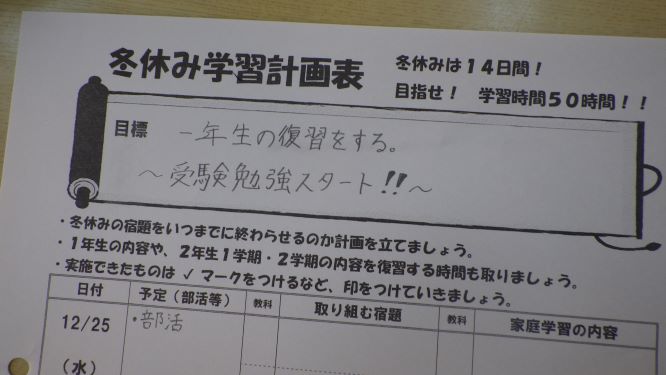 冬休み学習計画表
冬休みは14日間！
目指せ！ 学習時間50時間！！
目標 一年生の復習をする。
～受験勉強スタート!!～
・冬休みの宿題をいつまでに終わらせるのか計画を立てましょう。
・1年生の内容や、2年生1学期・2学期の内容を復習する時間も取りましょう。
・実施できたものは✓マークをつけるなど、印をつけていきましょう。
日付 予定（部活等） 教科 取り組む宿題 教科 家庭学習の内容
12/25 ・部活
（水）